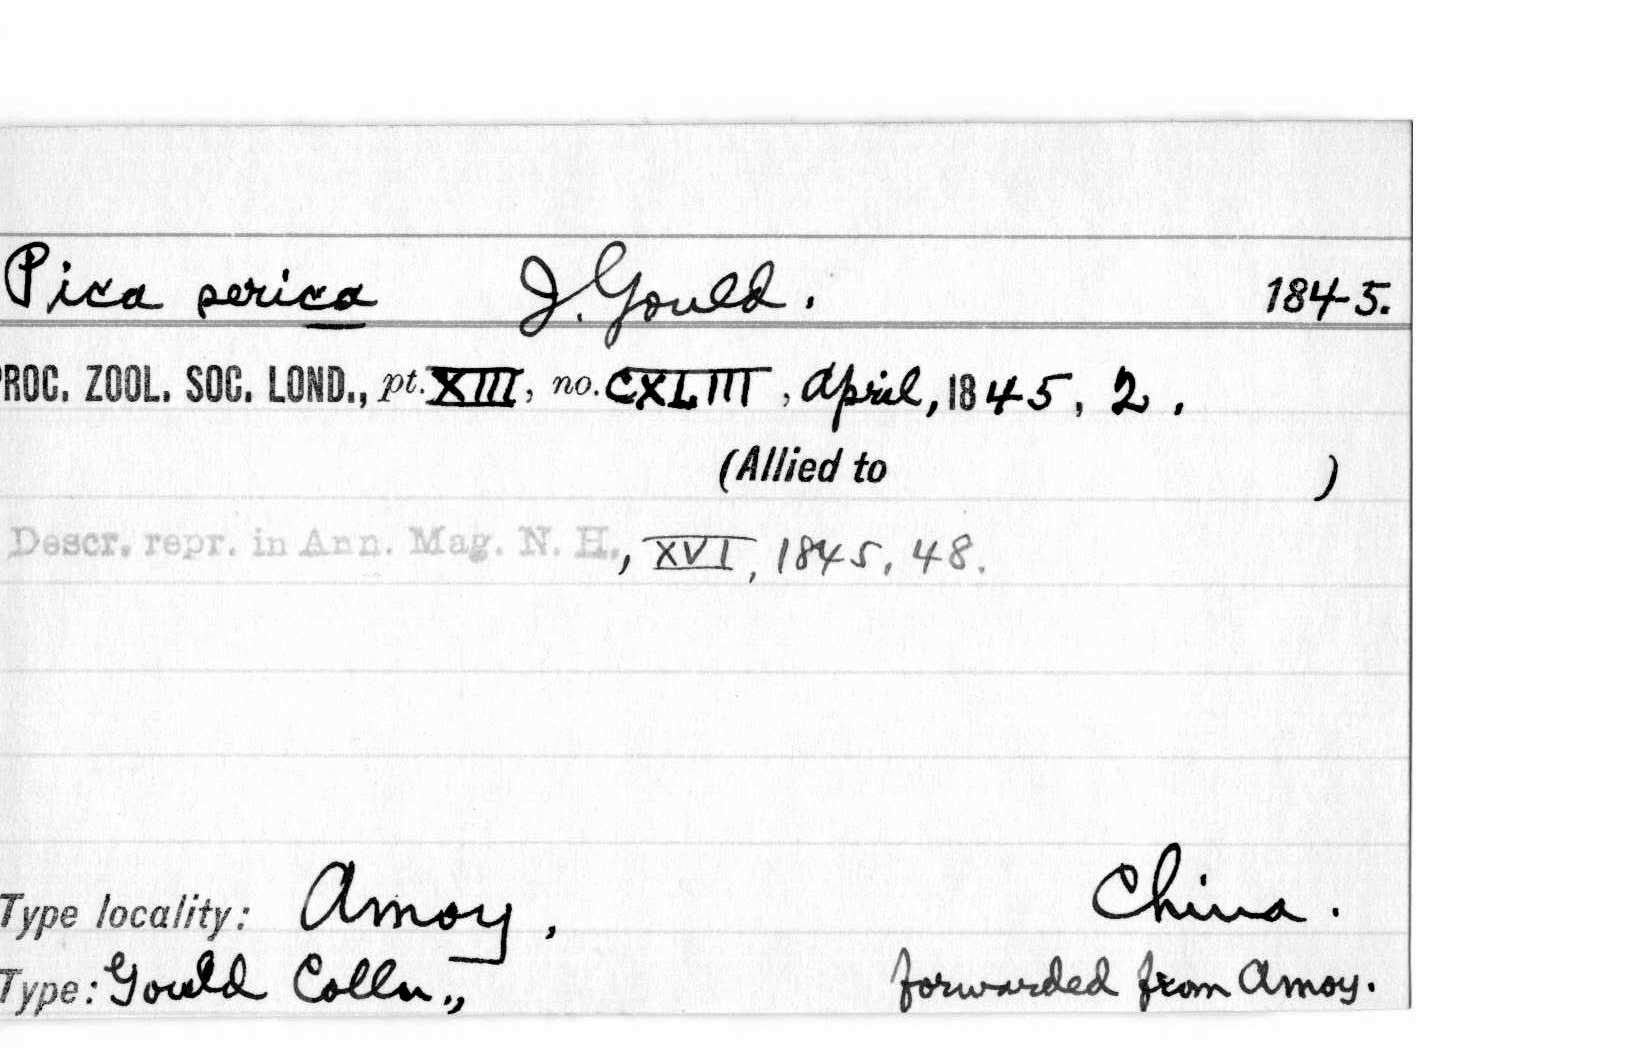 Pica serica J. Gould. 1845.
PROC. ZOOL. SOC. LOND., pt. XIII, no. CXLIII, April, 1845, 2.
(Allied to )
Descr. repr. in Ann. Mag. N. H., XVI, 1845, 48.
Type locality: Amoy, China.
Type: Gould Colln., forwarded from Amoy.